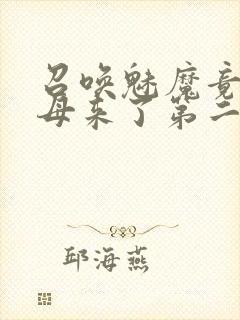 召唤魅魔竟
母来了第二
邱海燕